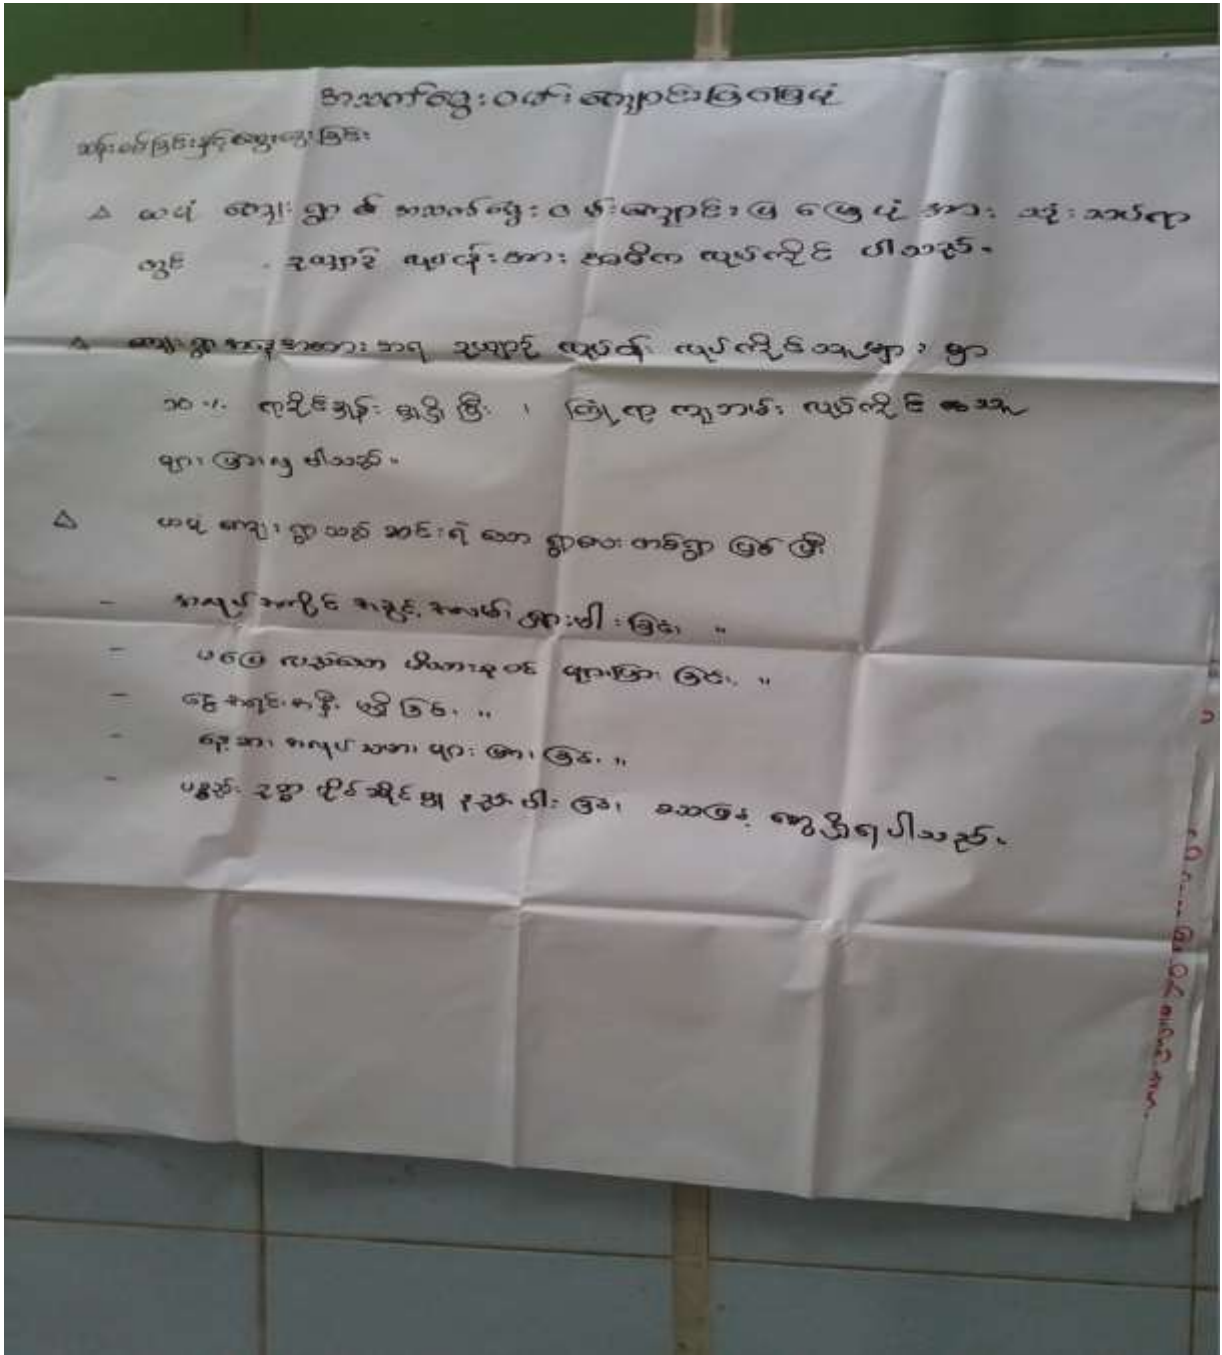 အသက်မွေးဝမ်းကျောင်းပြမြေပုံ
ဆန်းစစ်ခြင်းနှင့်ဆွေးနွေးခြင်း
△ ကျေးရွာ ၏ အသက်မွေးဝမ်းကျောင်းပြ မြေပုံ အား သုံးသပ်ရာ
တွင် လုပ်ငန်းအား အဓိက လုပ်ကိုင် ပါသည်။
△ ကျေးရွာအနေအထား အရ လုပ်ငန်း လုပ်ကိုင်သူများ မှာ
ရာခိုင်နှုန်း ရှိပြီး ၊ ကြုံရာကျဘမ်း လုပ်ကိုင် သူ
များ ပြားလှ ပါသည်။
△ ကျေးရွာသည် ဆင်းရဲ သော ရွာလေး တစ်ရွာ ဖြစ် ပြီး
- အလုပ်အကိုင် အခွင့်အလမ်း ရှားပါးခြင်း ။
- မပြေလည်သော မိသားစုဝင် များပြားခြင်း ။
- ငွေအရင်းအနှီး မရှိခြင်း ။
- နေ့စား အလုပ်သမား များပြားခြင်း ။
- ပစ္စည်းဥစ္စာ ပိုင်ဆိုင်မှု နည်းပါးခြင်း စသဖြင့် တွေ့ရှိရပါသည်။